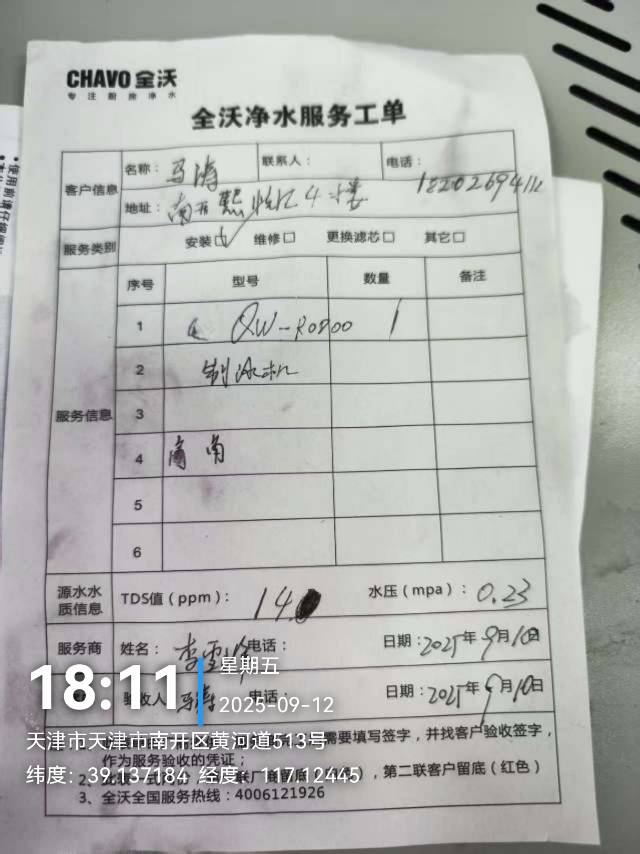 CHAVO 全沃
专注厨房净水
全沃净水服务工单
客户信息
名称：马涛 联系人： 电话：
地址：南开熙悦汇4楼 1820269411
服务类别 安装☑ 维修□ 更换滤芯□ 其它□
服务信息
序号 型号 数量 备注
1 QW-RO800 1
2 制冰机
3
4 商用
5
6
源水水质信息 TDS值（ppm）： 14 水压（mpa）：0.23
服务商 姓名：李雪 电话： 日期：2025年9月10日
验收人 马涛 电话： 日期：2025年9月10日
需要填写签字，并找客户验收签字，
作为服务验收的凭证；
2、 联厂商留底 ，第二联客户留底（红色）
3、全沃全国服务热线：4006121926
18:11
星期五
2025-09-12
天津市天津市南开区黄河道513号
纬度：39.137184 经度：117.12445
使用前请仔细阅